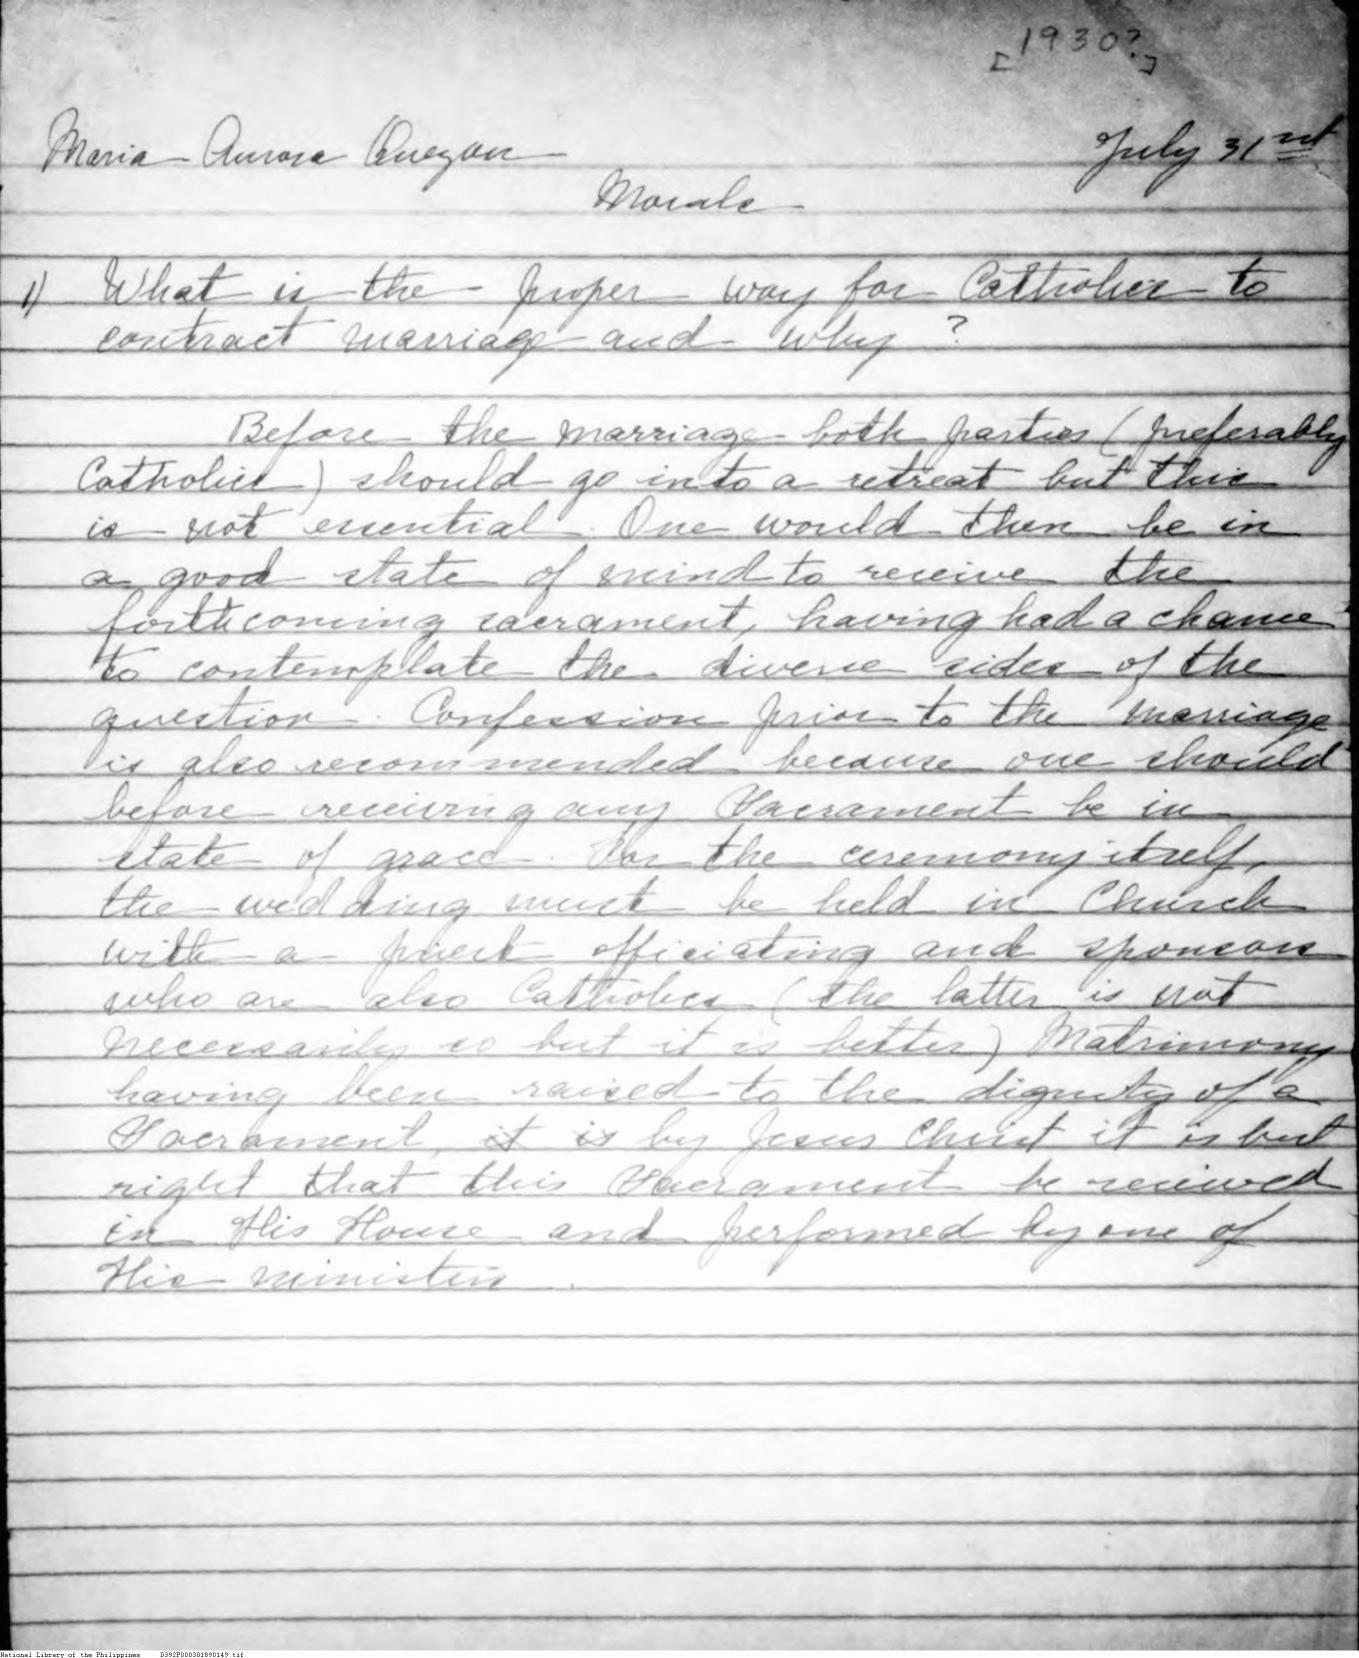 [1930?]
Maria Aurora Quezon July 31st
Morals
1) What is the proper way for Catholics to
contract marriage and why?
Before the marriage both parties (preferably
Catholics) should go into a retreat but this
is not essential. One would then be in
a good state of mind to receive the
forthcoming sacrament, having had a chance
to contemplate the diverse sides of the
question. Confession prior to the marriage
is also recommended because one should
before receiving any Sacrament be in
state of grace. For the ceremony itself,
the wedding must be held in Church
with a priest officiating and sponsors
who are also Catholics (the latter is not
necessarily so but it is better) Matrimony
having been raised to the dignity of a
Sacrament, it is by Jesus Christ it is but
right that this Sacrament be received
in His House and performed by one of
His ministers.
National Library of the Philippines D392P000301890149.tif